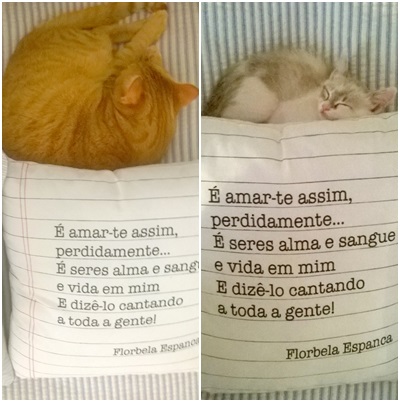 É amar-te assim,
perdidamente...
É seres alma e sangu
e vida em mim
E dizê-lo cantando
a toda a gente!
Florbela Espanca
É amar-te assim,
perdidamente...
É seres alma e sangue
e vida em mim
E dizê-lo cantando
a toda a gente!
Florbela Espanca